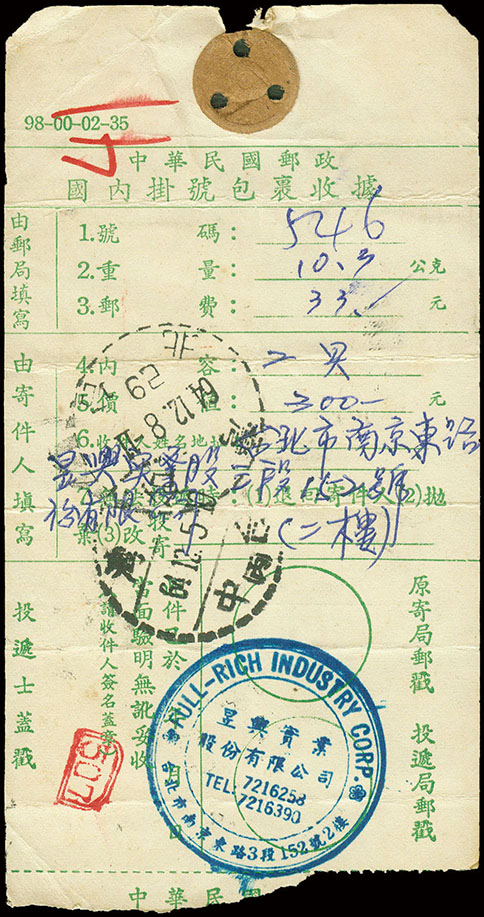 98-00-02-35
中華民國郵政
國內掛號包裹收據
由郵局填寫
1.號碼：546
2.重量：10.3 公克
3.郵費：33 元
由寄件人填寫
4.內容：工具
5.價值：300— 元
6.收件人姓名地址
台北市南京東路
昱興實業股
份有限
(二樓)
(1)退回寄件人(2)拋
棄(3)改寄
64.12.8
64.12.5
投遞士蓋戳
件已於 月 日
當面驗明無訛妥收
請收件人簽名蓋章
原寄局郵戳
投遞局郵戳
507
FULL-RICH INDUSTRY CORP.
昱興實業
股份有限公司
7216258
TEL:7216390
台北市南京東路3段152號2樓
中華民國